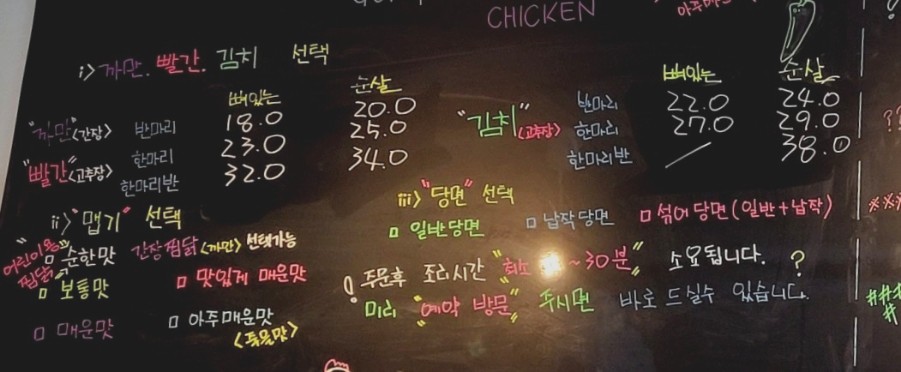 CHICKEN
i> 까만. 빨간. 김치 선택
뼈있는 순살
"까만"<간장> 반마리 18.0 20.0
"빨간"<고추장> 한마리 23.0 25.0
한마리반 32.0 34.0
뼈있는 순살
"김치"<고추장> 반마리 22.0 24.0
한마리 27.0 29.0
한마리반 / 38.0
ii> "맵기" 선택
"어린이용" 찜닭
순한맛 간장찜닭<까만> 선택가능
보통맛 맛있게 매운맛
매운맛 아주매운맛
<죽을맛>
iii> "당면" 선택
일반당면 납작당면 섞어당면(일반+납작)
! 주문후 조리시간 "최소 ~30분" 소요됩니다.
미리 "예약 방문" 주시면 바로 드실수 있습니다.
?
??
※※
###
#